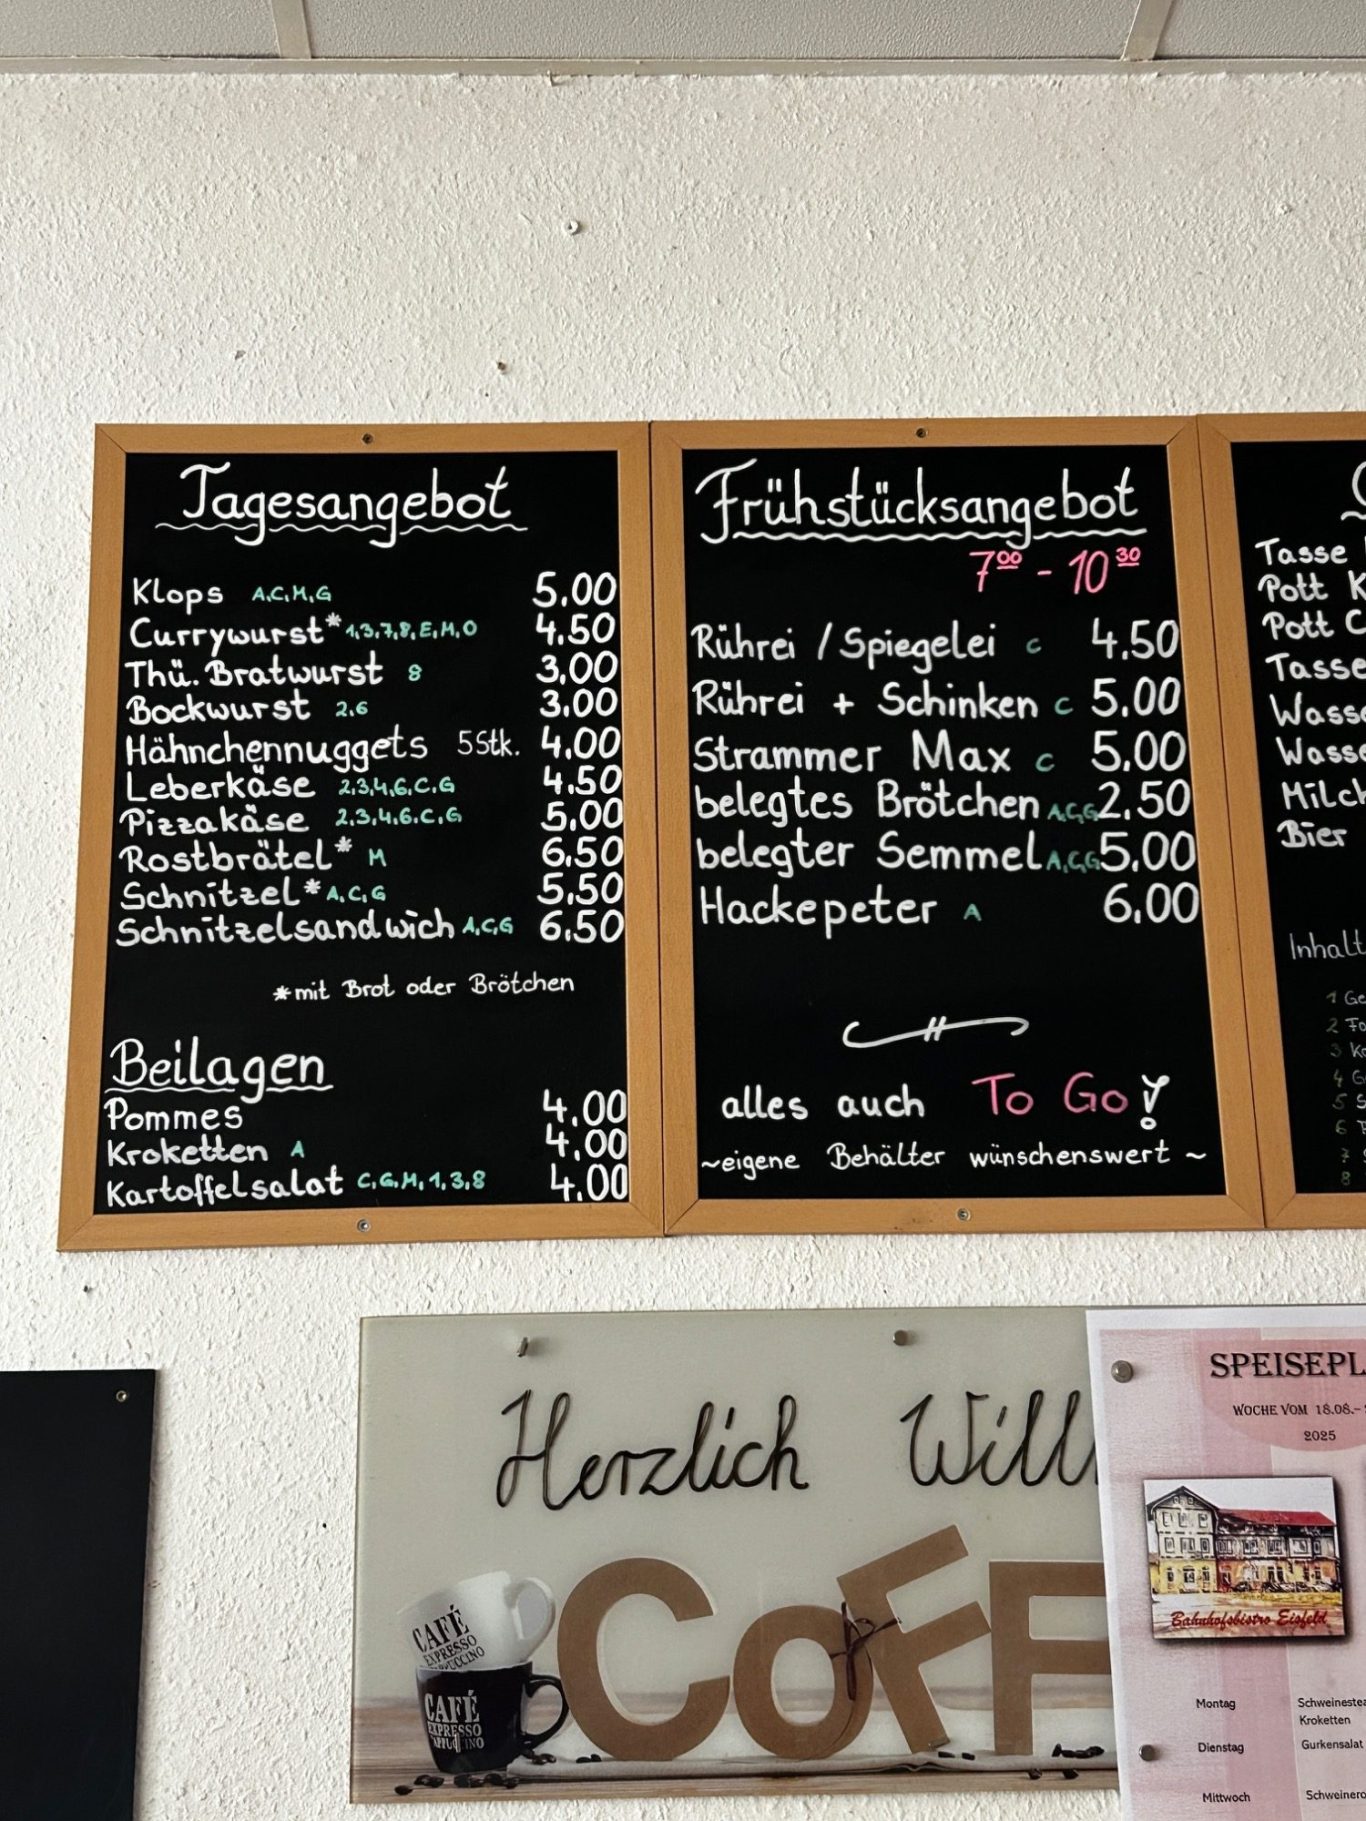 Tagesangebot
Klops A,C,M,G 5.00
Currywurst* 1,3,7,8,E,M,O 4.50
Thü. Bratwurst 8 3.00
Bockwurst 2.6 3.00
Hähnchennuggets 5 Stk. 4.00
Leberkäse 2,3,4,6,C,G 4.50
Pizzakäse 2,3,4,6,C,G 5.00
Rostbrätel* M 6.50
Schnitzel* A,C,G 5.50
Schnitzelsandwich A,C,G 6.50
*mit Brot oder Brötchen
Beilagen
Pommes 4.00
Kroketten A 4.00
Kartoffelsalat C,G,M,1,3,8 4.00
Frühstücksangebot
7⁰⁰ - 10³⁰
Rührei / Spiegelei C 4.50
Rührei + Schinken C 5.00
Strammer Max C 5.00
belegtes Brötchen A,C,G 2.50
belegter Semmel A,C,G 5.00
Hackepeter A 6.00
alles auch To Go!
~eigene Behälter wünschenswert ~
Tasse
Pott
Pott
Tasse
Wasse
Wasse
Milch
Bier
Inhalt
1 Ge
2 Fo
3
4
5
6
7
8
Herzlich Will
COFF
CAFÉ
EXPRESSO
CAFÉ
EXPRESSO
SPEISEPL
WOCHE VOM 18.08.-
2025
Bahnhofsbistro Eisfeld
Montag Schweinestea
Kroketten
Dienstag Gurkensalat
Mittwoch Schweinero